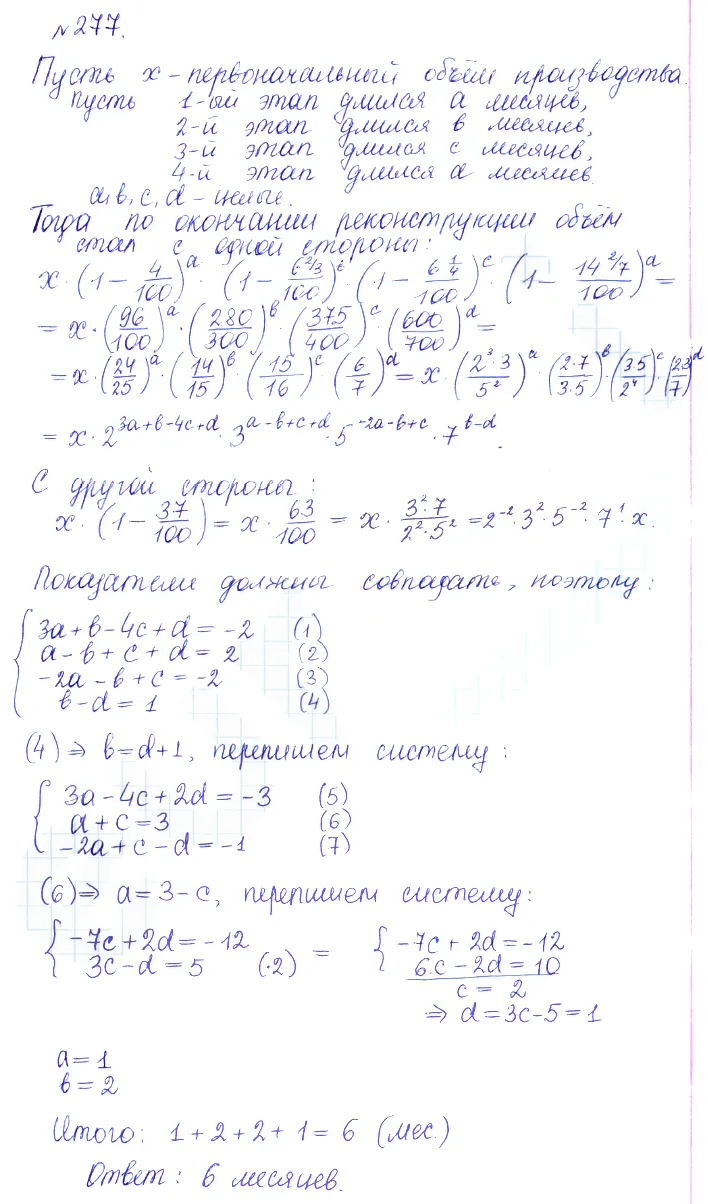 №277.
Пусть x – первоначальный объём производства.
пусть 1-ый этап длился a месяцев,
2-й этап длился b месяцев,
3-й этап длился c месяцев,
4-й этап длился d месяцев.
a, b, c, d – целые.
Тогда по окончании реконструкции объём
стал с одной стороны:
x·(1 − 4/100)^a · (1 − 6 2/3/100)^b · (1 − 6 1/4/100)^c · (1 − 14 2/7/100)^d =
= x·(96/100)^a · (280/300)^b · (375/400)^c · (600/700)^d =
= x·(24/25)^a · (14/15)^b · (15/16)^c · (6/7)^d = x·(2^3·3/5^2)^a · (2·7/3·5)^b · (3·5/2^4)^c · (2·3/7)^d
= x·2^(3a+b−4c+d) · 3^(a−b+c+d) · 5^(−2a−b+c) · 7^(b−d).
С другой стороны:
x·(1 − 37/100) = x·63/100 = x·3^2·7/2^2·5^2 = 2^−2·3^2·5^−2·7^1·x.
Показатели должны совпадать, поэтому:
3a+b−4c+d=−2 (1)
a−b+c+d=2 (2)
−2a−b+c=−2 (3)
b−d=1 (4)
(4)⇒ b=d+1, перепишем систему:
3a−4c+2d=−3 (5)
a+c=3 (6)
−2a+c−d=−1 (7)
(6)⇒ a=3−c, перепишем систему:
−7c+2d=−12 = −7c+2d=−12
3c−d=5 (·2) 6c−2d=10
c=2
⇒ d=3c−5=1
a=1
b=2
Итого: 1+2+2+1=6 (мес.)
Ответ: 6 месяцев.